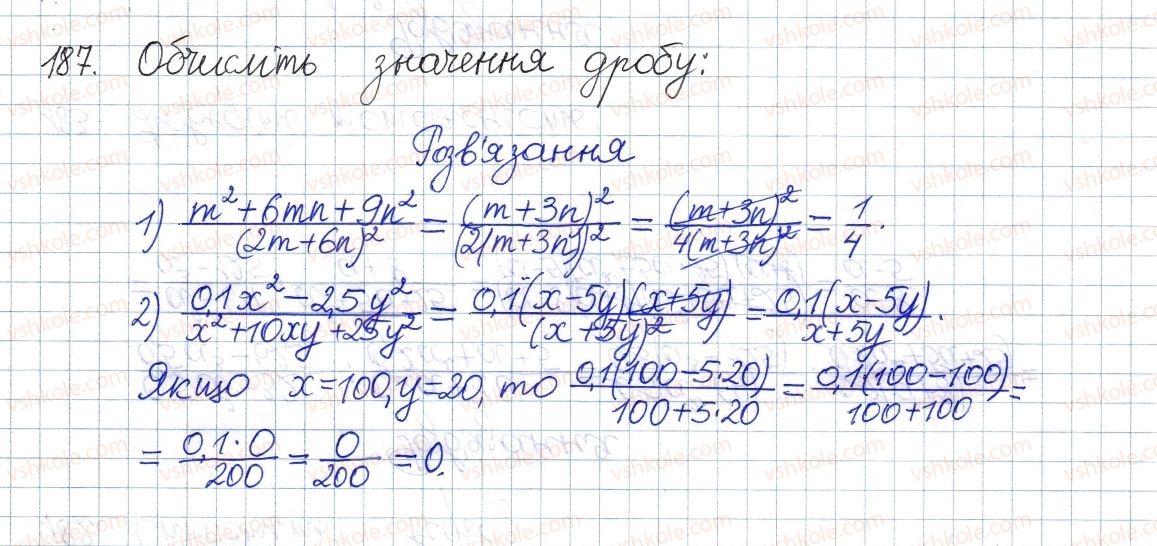 187. Обчисліть значення дробу:
Розв'язання
1) (m² + 6mn + 9n²)/(2m + 6n)² = (m + 3n)²/(2(m + 3n))² = (m + 3n)²/4(m + 3n)² = 1/4.
2) (0,1x² − 2,5y²)/(x² + 10xy + 25y²) = 0,1(x − 5y)(x + 5y)/(x + 5y)² = 0,1(x − 5y)/(x + 5y).
Якщо x = 100, y = 20, то 0,1(100 − 5·20)/(100 + 5·20) = 0,1(100 − 100)/(100 + 100) =
= 0,1·0/200 = 0/200 = 0.